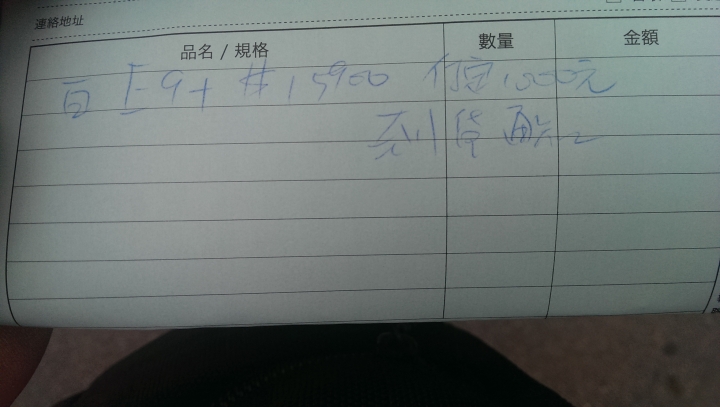 連絡地址
品名 / 規格 數量 金額
E9+ # 15900 付定1000元
到貨